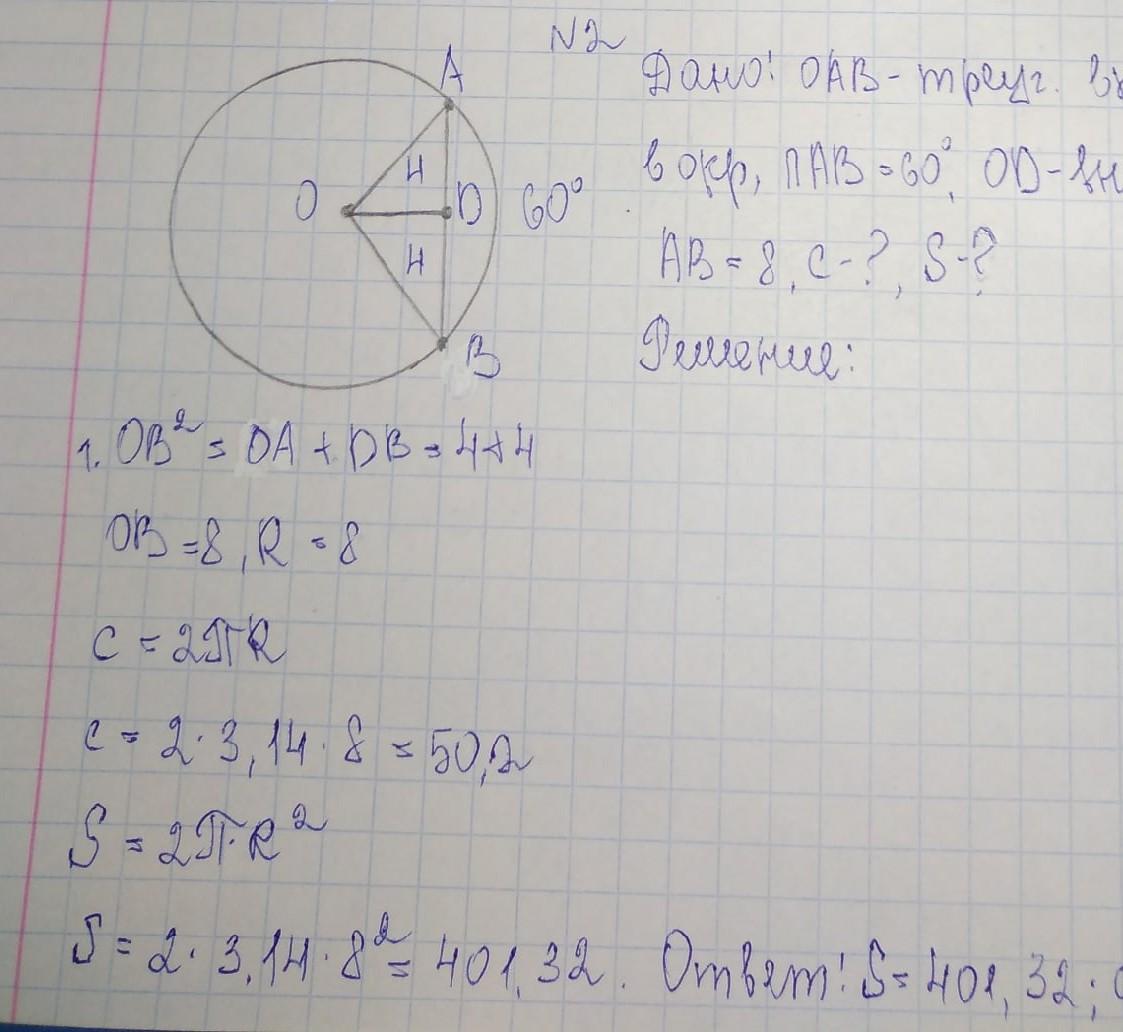 N2
Дано! OAB - треуг.
в окр, ПAB = 60°, OD - вн
AB = 8, C - ?, S - ?
Решение:
A
4
O
D 60°
4
B
1. OB² = DA + DB = 4+4
OB = 8, R = 8
C = 2πR
c = 2 · 3,14 · 8 = 50,2
S = 2π·R²
S = 2 · 3,14 · 8² = 401,32. Ответ! S = 401,32;